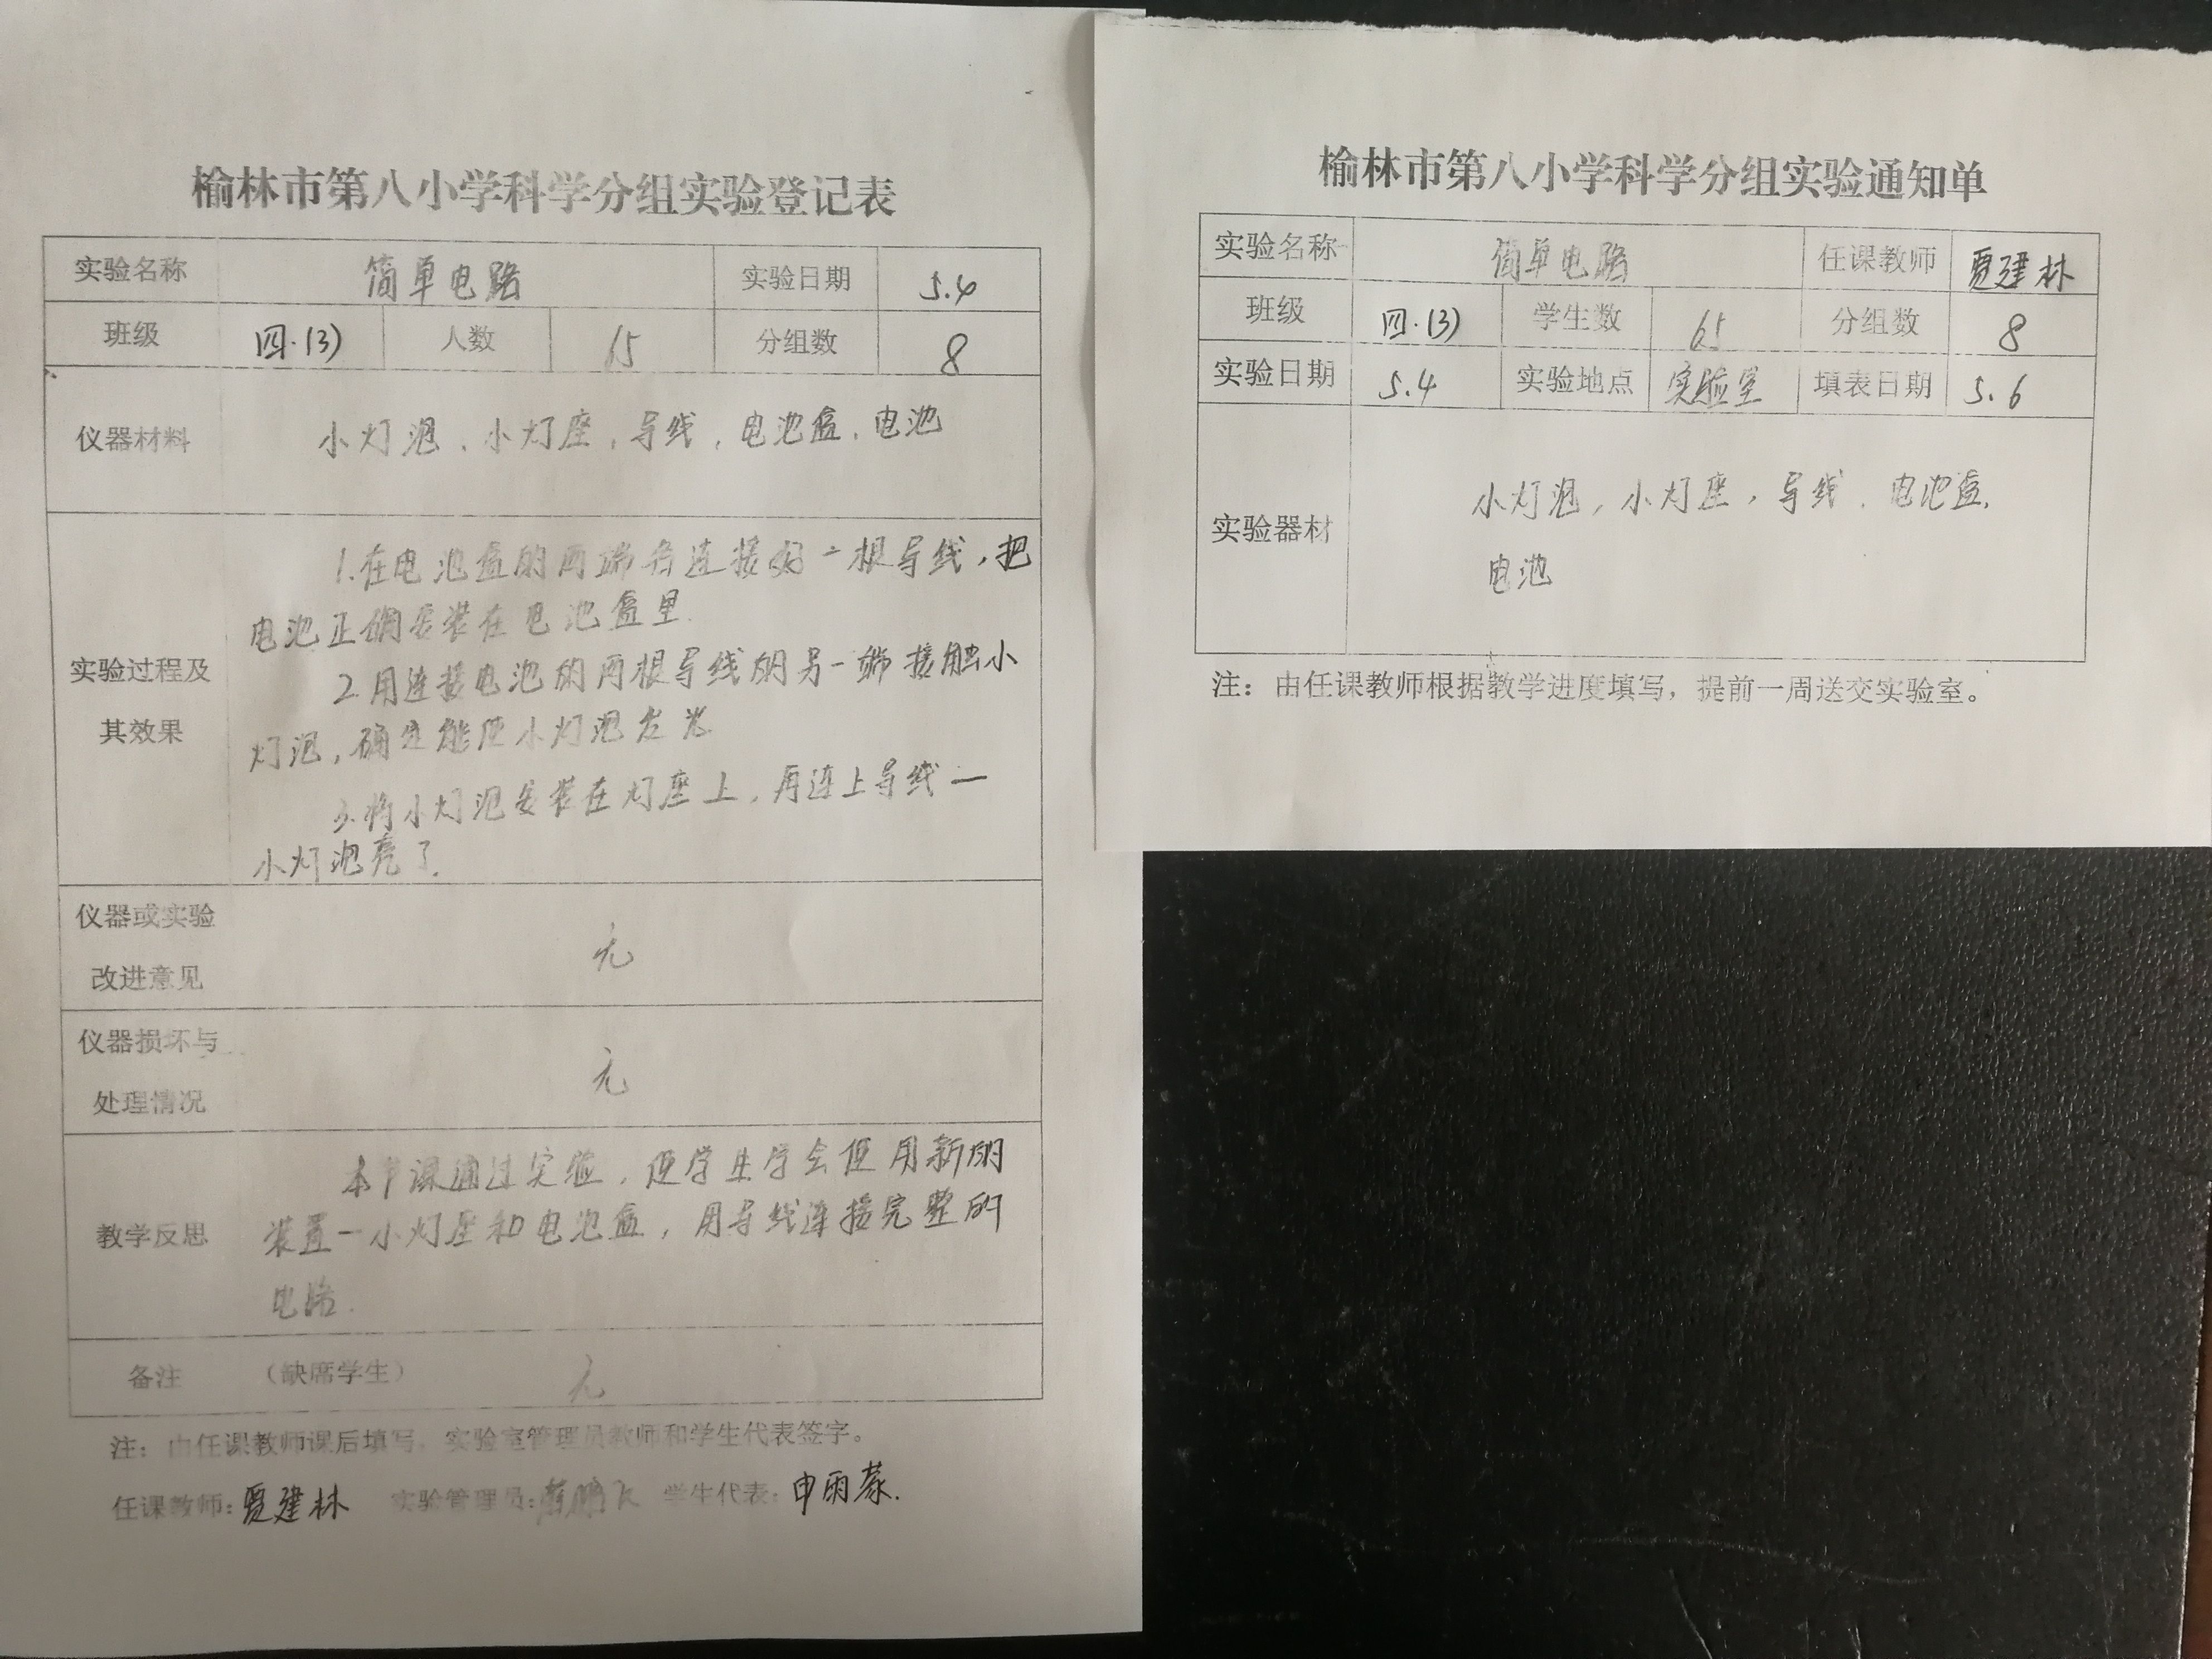 榆林市第八小学科学分组实验登记表
实验名称 简单电路 实验日期 5.4
班级 四.(3) 人数 65 分组数 8
仪器材料 小灯泡、小灯座，导线，电池盒、电池
实验过程及其效果
1.在电池盒的两端各连接好一根导线，把
电池正确安装在电池盒里.
2.用连接电池的两根导线的另一端接触小
灯泡，确定能使小灯泡发光
3.将小灯泡安装在灯座上，再连上导线一
小灯泡亮了.
仪器或实验
改进意见 无
仪器损坏与
处理情况 无
教学反思
本节课通过实验，使学生学会使用新的
装置一小灯座和电池盒，用导线连接完整的
电路.
备注 （缺席学生） 无
注：由任课教师课后填写，实验室管理员教师和学生代表签字。
任课教师：贾建林 实验管理员： 学生代表：申雨蒙.
榆林市第八小学科学分组实验通知单
实验名称 简单电路 任课教师 贾建林
班级 四.(3) 学生数 65 分组数 8
实验日期 5.4 实验地点 实验室 填表日期 5.6
实验器材 小灯泡，小灯座，导线、电池盒、
电池
注：由任课教师根据教学进度填写，提前一周送交实验室。